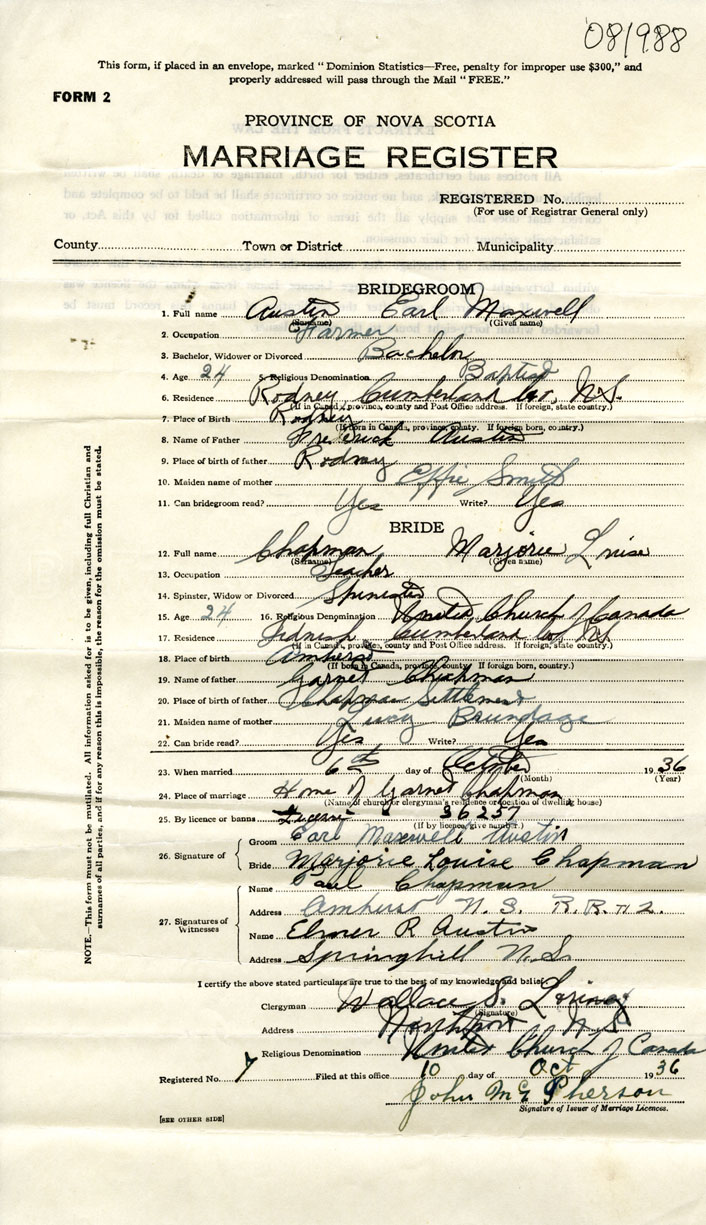 081988
This form, if placed in an envelope, marked “ Dominion Statistics—Free, penalty for improper use $300,” and
properly addressed will pass through the Mail “ FREE.”
FORM 2
PROVINCE OF NOVA SCOTIA
MARRIAGE REGISTER
REGISTERED No.
(For use of Registrar General only)
County Town or District Municipality
BRIDEGROOM
1. Full name Austin Earl Maxwell
(Surname) (Given name)
2. Occupation Farmer
3. Bachelor, Widower or Divorced Bachelor
4. Age 24 5. Religious Denomination Baptist
6. Residence Rodney Cumberland Co, N.S.
(If in Canada, province, county and Post Office address. If foreign, state country.)
7. Place of Birth Rodney
(If born in Canada, province, county. If foreign born, country.)
8. Name of Father Frederick Austin
9. Place of birth of father Rodney
10. Maiden name of mother Effie Smith
11. Can bridegroom read? Yes Write? Yes
BRIDE
12. Full name Chapman Marjorie Louise
(Surname) (Given name)
13. Occupation Teacher
14. Spinster, Widow or Divorced Spinster
15. Age 24 16. Religious Denomination United Church of Canada
17. Residence Cumberland Co, N.S.
(If in Canada, province, county and Post Office address. If foreign, state country.)
18. Place of birth Amherst
(If born in Canada, province, county. If foreign born, country.)
19. Name of father Garnet Chapman
20. Place of birth of father Chapman Settlement
21. Maiden name of mother Lucy Brundage
22. Can bride read? Yes Write? Yes
23. When married 6th day of October 1936
(Month) (Year)
24. Place of marriage Home of Garnet Chapman
(Name of church or clergyman's residence or location of dwelling house)
25. By licence or banns License 36257
(If by licence, give number.)
26. Signature of Groom Earl Maxwell Austin
Bride Marjorie Louise Chapman
27. Signatures of Witnesses
Name Chapman
Address Amherst N.S. R.R. # 2.
Name Elmer R Austin
Address Springhill N.S.
I certify the above stated particulars are true to the best of my knowledge and belief.
Clergyman Wallace S.
(Signature)
Address Northport N.S.
Religious Denomination United Church of Canada
Registered No. 7 Filed at this office 10 day of Oct 1936
John McPherson
Signature of Issuer of Marriage Licences.
[SEE OTHER SIDE]
NOTE.—This form must not be mutilated. All information asked for is to be given, including full Christian and
surnames of all parties, and if for any reason this is impossible, the reason for the omission must be stated.